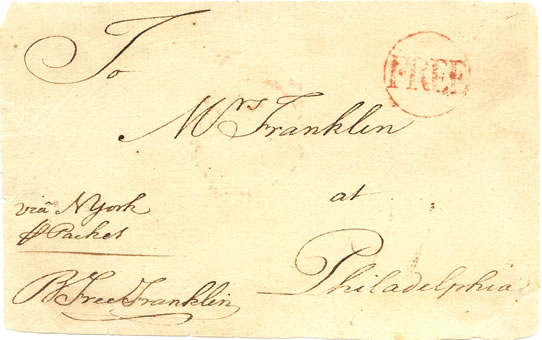 To
FREE
Mrs Franklin
at
Philadelphia
via NYork
⅌ Packet
B Free Franklin